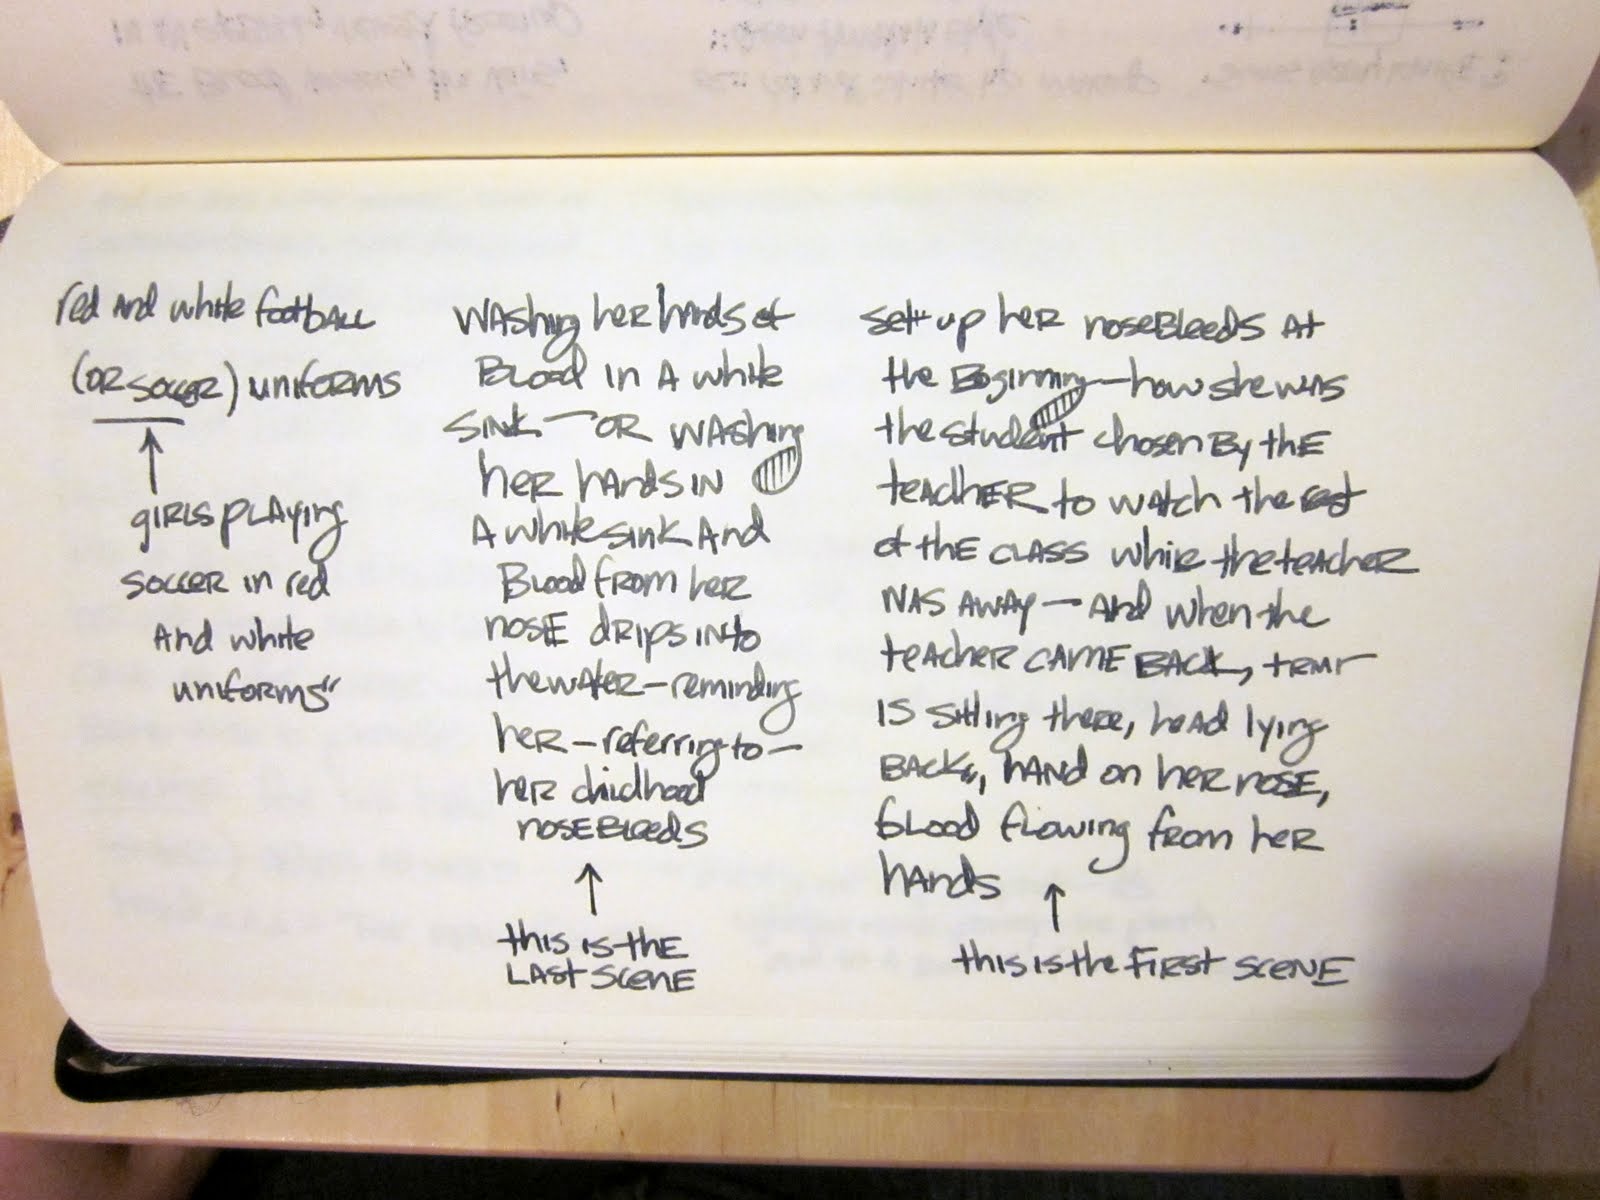 red and white football
(or soccer) uniforms
girls playing
soccer in red
and white
uniforms"
washing her hands of
Blood in a white
sink — or washing
her hands in
a white sink and
Blood from her
nose drips into
the water — reminding
her — referring to —
her childhood
nosebleeds
this is the
last scene
set up her nosebleeds at
the beginning — how she was
the student chosen by the
teacher to watch the rest
of the class while the teacher
was away — and when the
teacher came back,
is sitting there, head lying
back, hand on her nose,
blood flowing from her
hands
this is the first scene